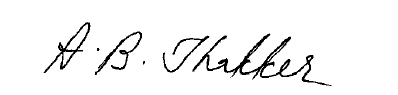 A. B. Thakker